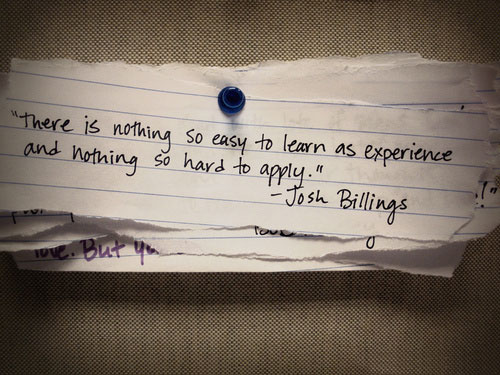 "There is nothing so easy to learn as experience
and nothing so hard to apply."
-Josh Billings
!"
love. But